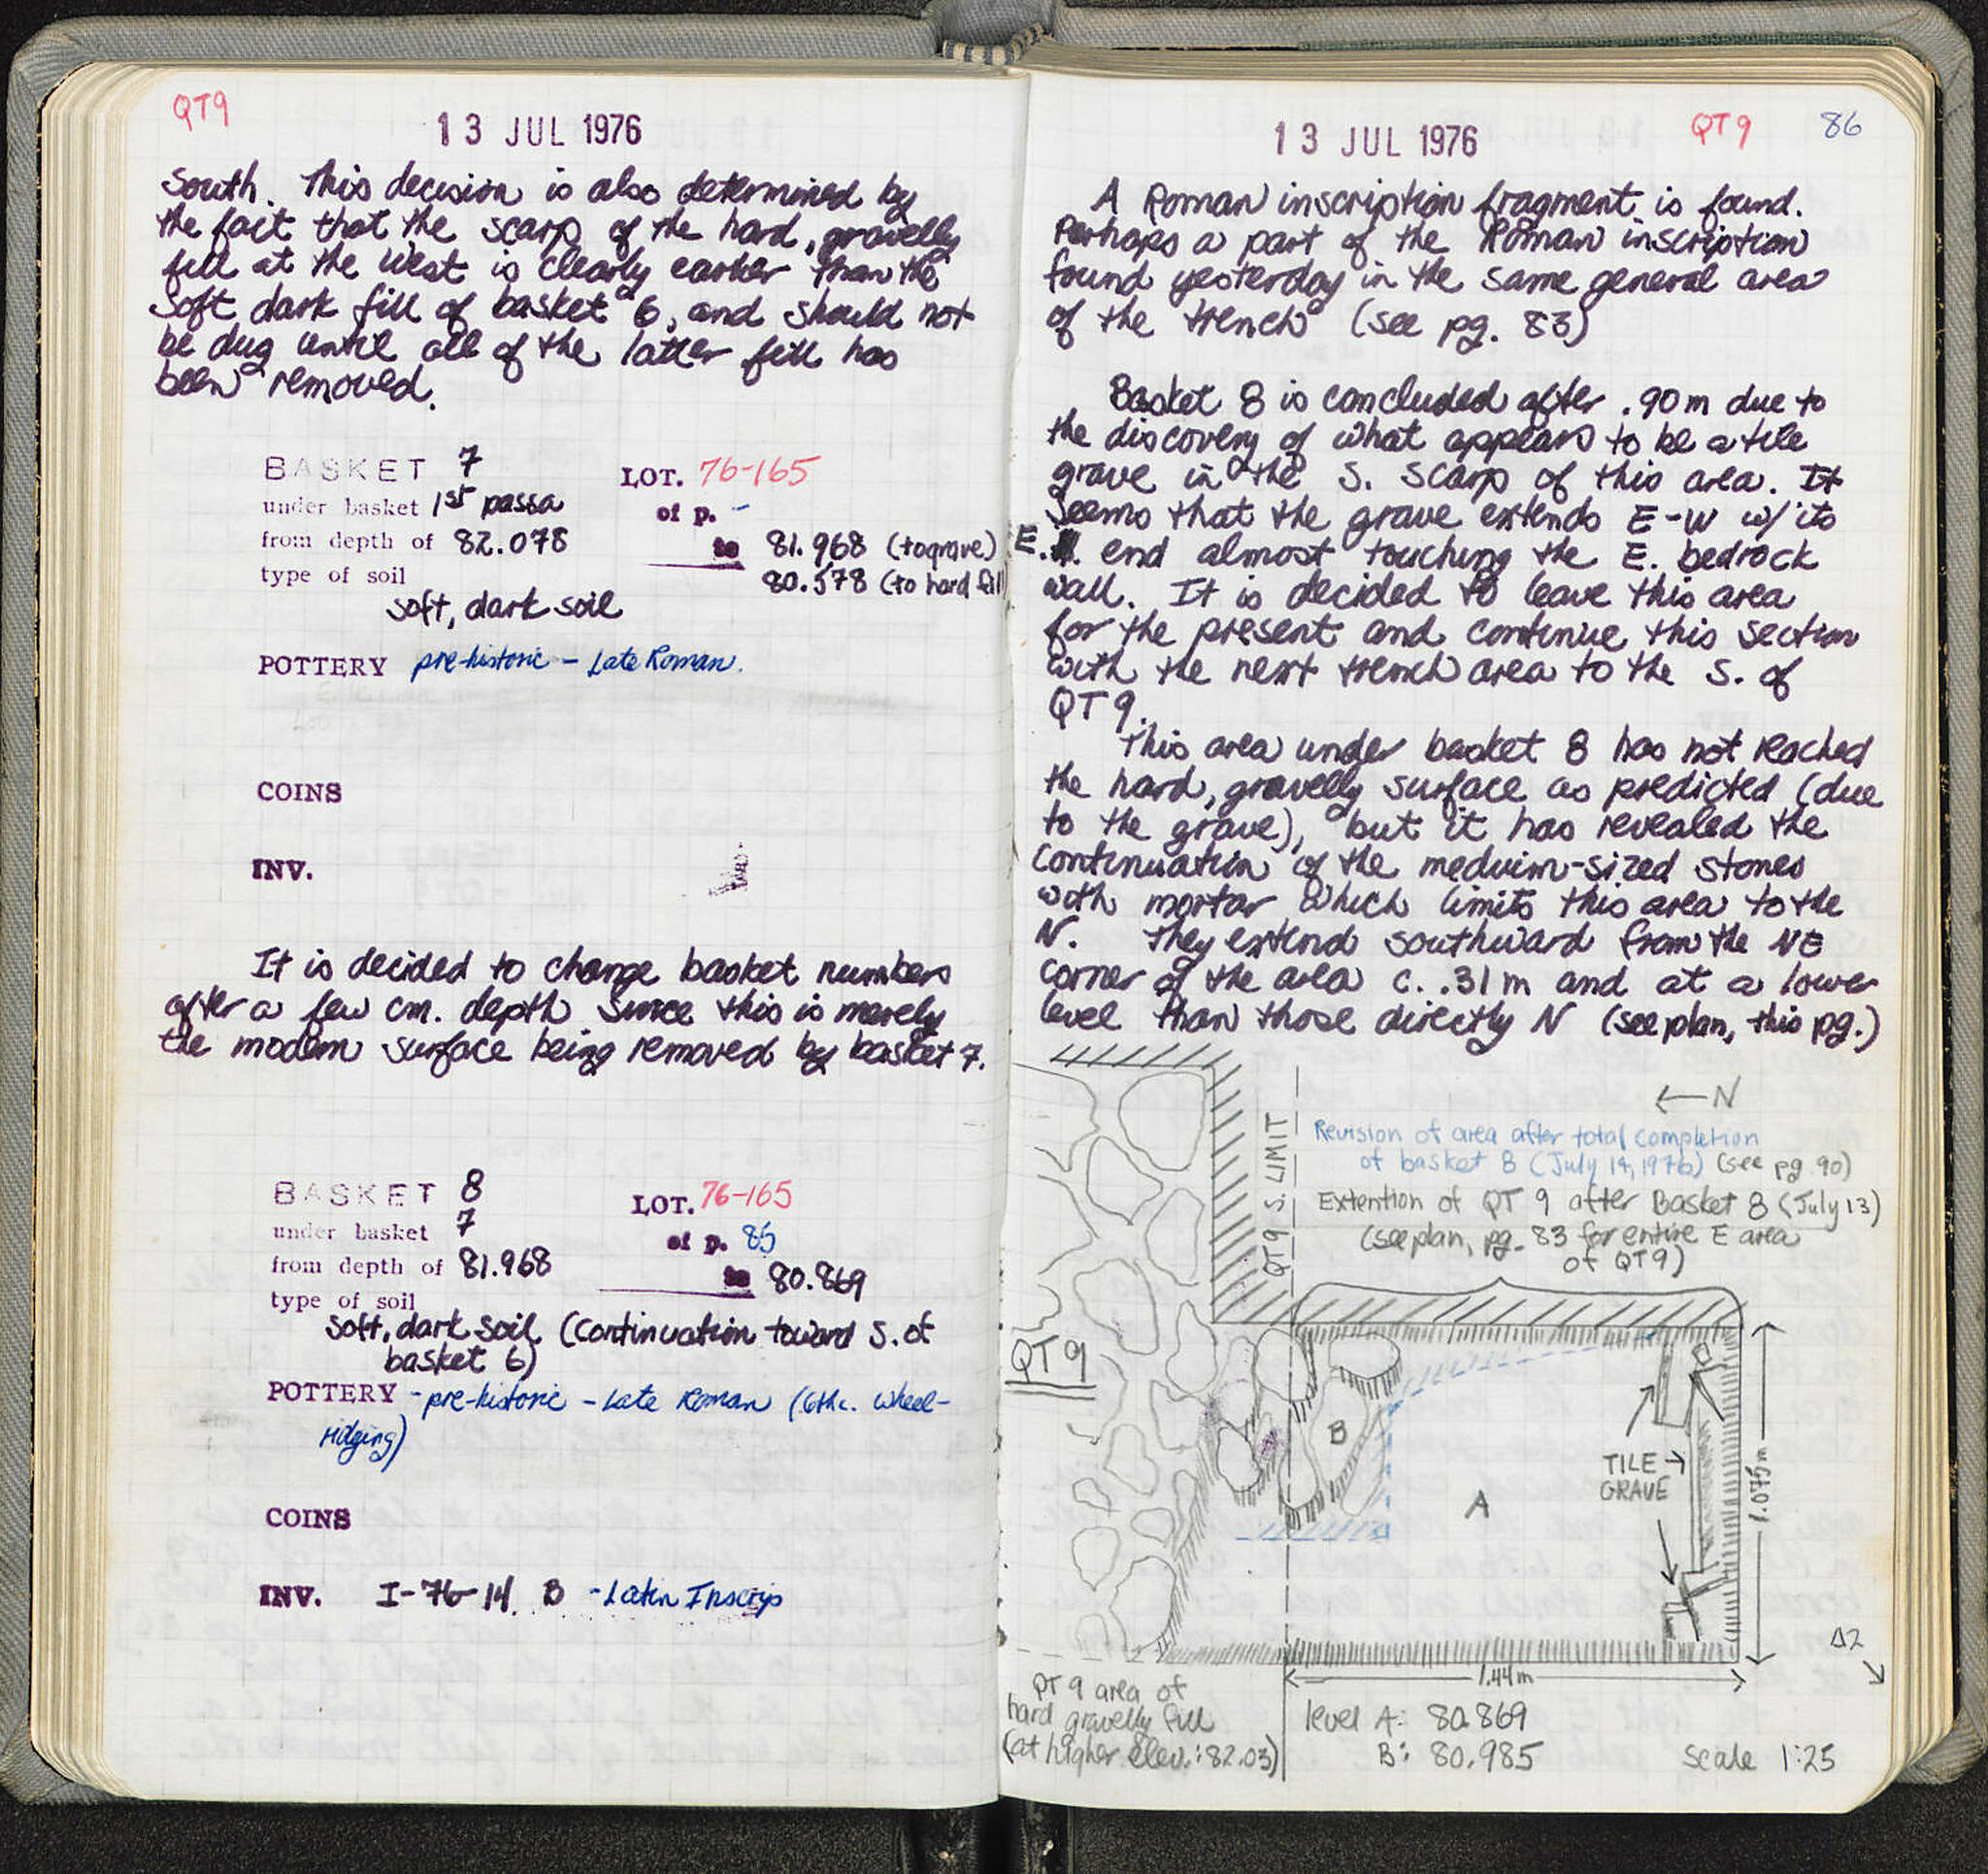 QT9
13 JUL 1976
South. This decision is also determined by
the fact that the scarp of the hard, gravelly
fill at the West is clearly earlier than the
soft dark fill of basket 6, and should not
be dug until all of the latter fill has
been removed.
BASKET 7
LOT. 76-165
under basket 1st passa
of p. -
from depth of 82.078
to 81.968 (to grave)
type of soil
80.578 (to hard fill
soft, dark soil
POTTERY pre-historic - Late Roman.
COINS
INV.
It is decided to change basket numbers
after a few cm. depth since this is merely
the modern surface being removed by basket 7.
BASKET 8
LOT. 76-165
under basket 7
of p. 85
from depth of 81.968
to 80.869
type of soil
soft, dark soil (continuation toward S. of
basket 6)
POTTERY - pre-historic - Late Roman (6th c. wheel-
ridging)
COINS
INV. I-76-14 B - Latin Inscrip
13 JUL 1976
QT9
86
A Roman inscription fragment is found.
Perhaps a part of the Roman inscription
found yesterday in the same general area
of the trench (see pg. 83)
Basket 8 is concluded after .90 m due to
the discovery of what appears to be a tile
grave in the S. scarp of this area. It
seems that the grave extends E-W w/ its
E. end almost touching the E. bedrock
wall. It is decided to leave this area
for the present and continue this section
with the next trench area to the S. of
QT 9.
This area under basket 8 has not reached
the hard, gravelly surface as predicted (due
to the grave), but it has revealed the
continuation of the meduim-sized stones
with mortar which limits this area to the
N. They extend southward from the NE
corner of the area c. .31 m and at a lower
level than those directly N (see plan, this pg.)
← N
QT9 S. LIMIT
Revision of area after total completion
of basket 8 (July 14, 1976) (see pg 90)
Extention of QT 9 after Basket 8 (July 13)
(see plan, pg. 83 for entire E area
of QT9)
QT9
B
A
TILE
GRAVE
1.075m
Δ2
1.44m
QT 9 area of
hard gravelly fill
(at higher elev.: 82.03)
level A: 80.869
B: 80.985
scale 1:25